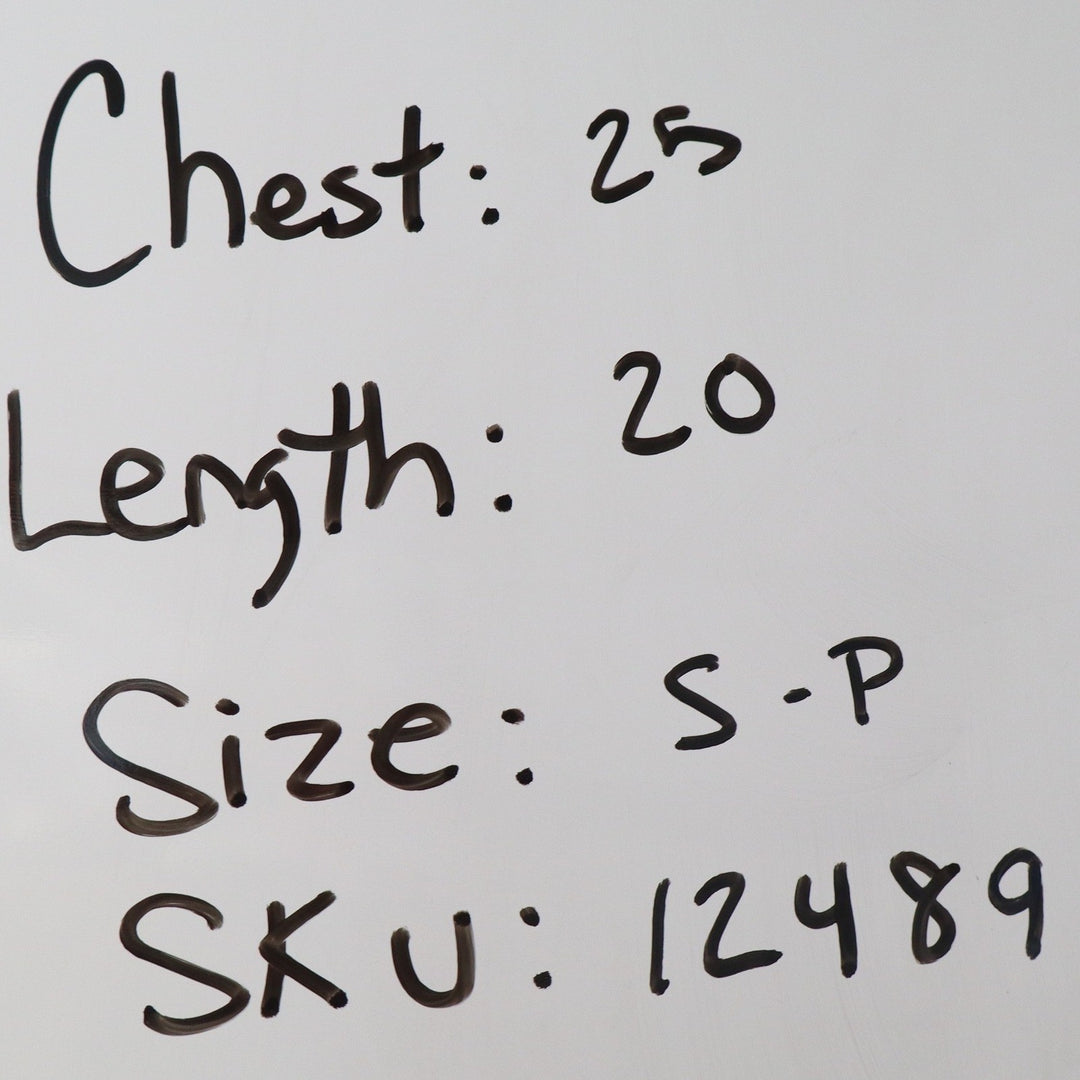 Chest: 25
Length: 20
Size: S-P
SKU: 12489